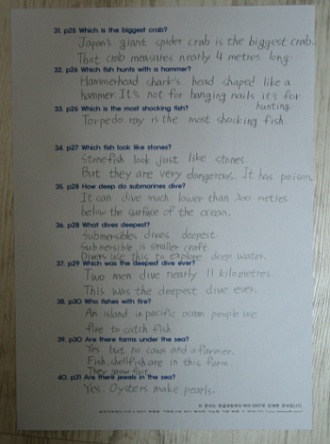 31. p25 Which is the biggest crab?
Japan's giant spider crab is the biggest crab.
That crab measures nearly 4 metres long.
32. p26 Which fish hunts with a hammer?
Hammerhead shark's head shaped like a
hammer. It's not for banging nails it's for
hunting.
33. p26 Which is the most shocking fish?
Torpedo ray is the most shocking fish.
34. p27 Which fish look like stones?
Stonefish look just like stones.
But they are very dangerous. It has poison.
35. p28 How deep do submarines dive?
It can dive much lower than 200 metres
below the surface of the ocean.
36. p28 What dives deepest?
Submersibles dives deepest.
Submersible is smaller craft.
Divers use this to explore deep water.
37. p29 Which was the deepest dive ever?
Two men dive nearly 11 kilometres.
This was the deepest dive ever.
38. p30 Who fishes with fire?
An island in pacific ocean people use
fire to catch fish
39. p30 Are there farms under the sea?
Yes but no cows and a farmer.
Fish, shellfish are in this farm.
They
40. p31 Are there jewels in the sea?
Yes. Oysters make pearls.